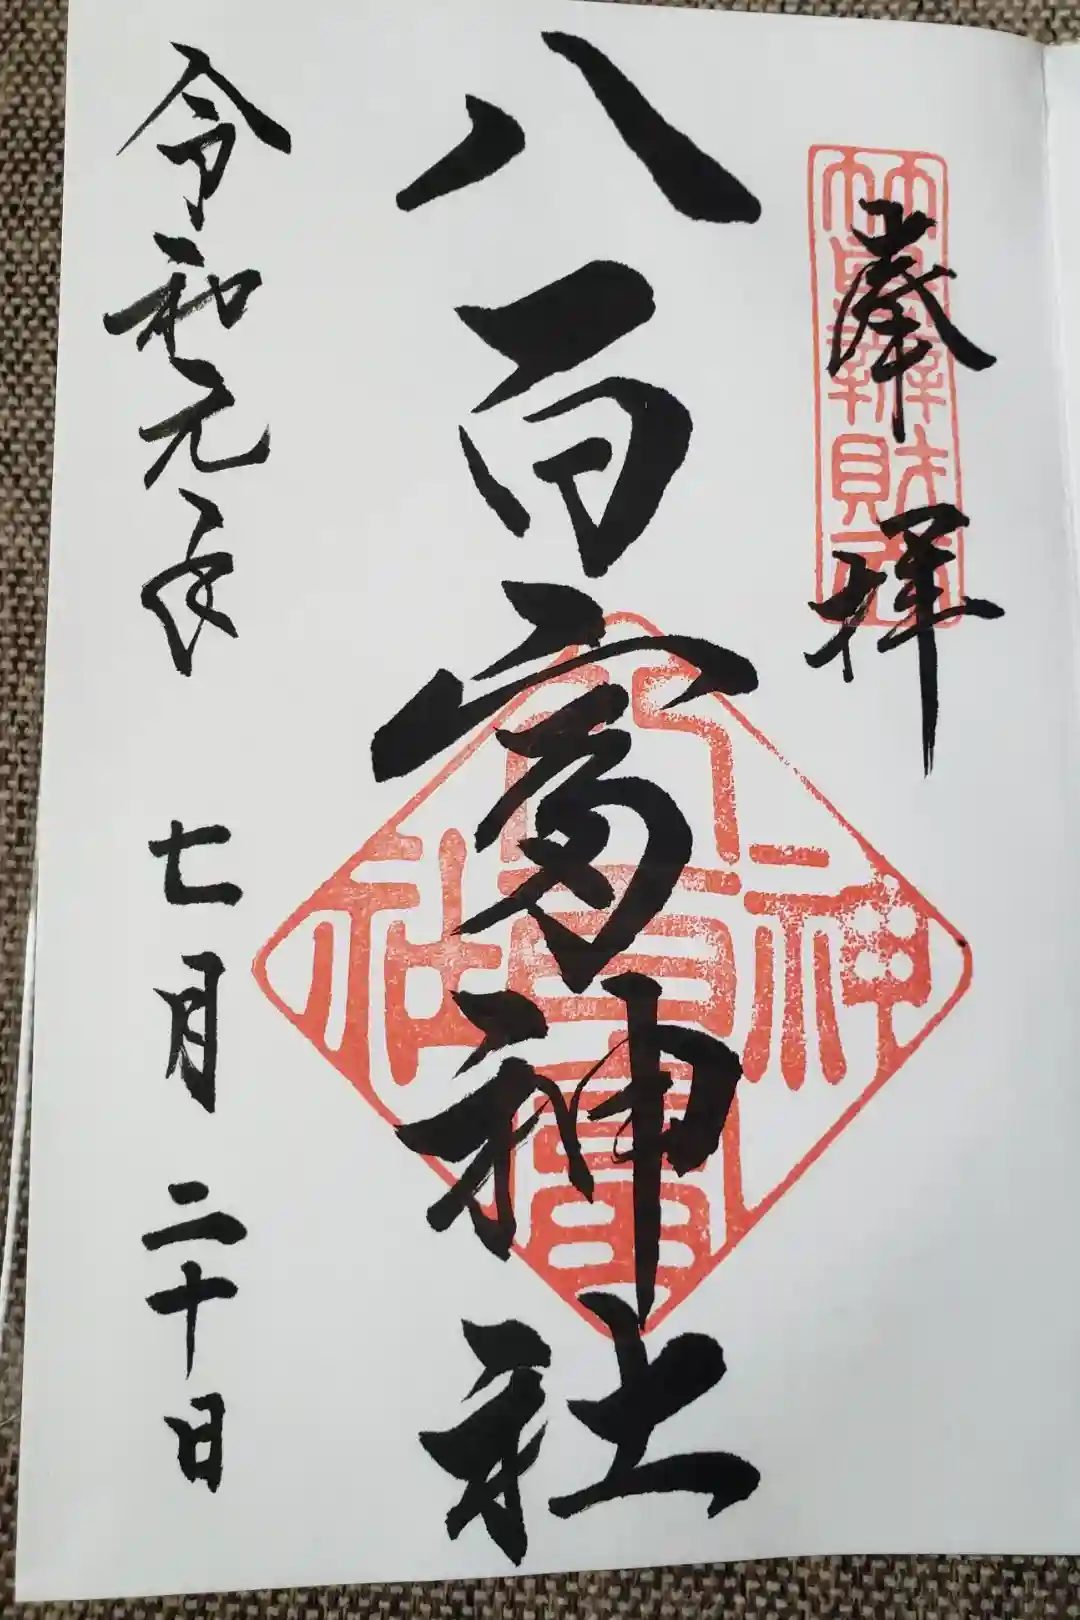 奉拝
竹島辨財天
八百富神社
八百富神社
令和元年 七月 二十日